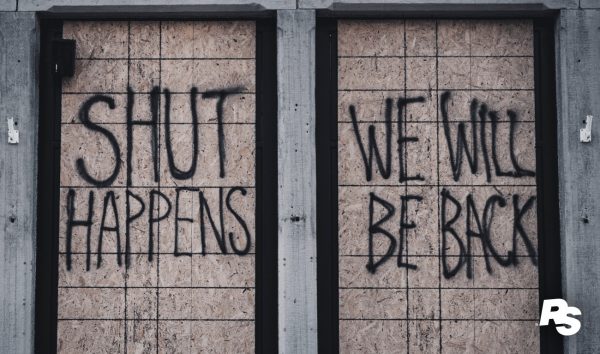 SHUT
HAPPENS
WE WILL
BE BACK
PS